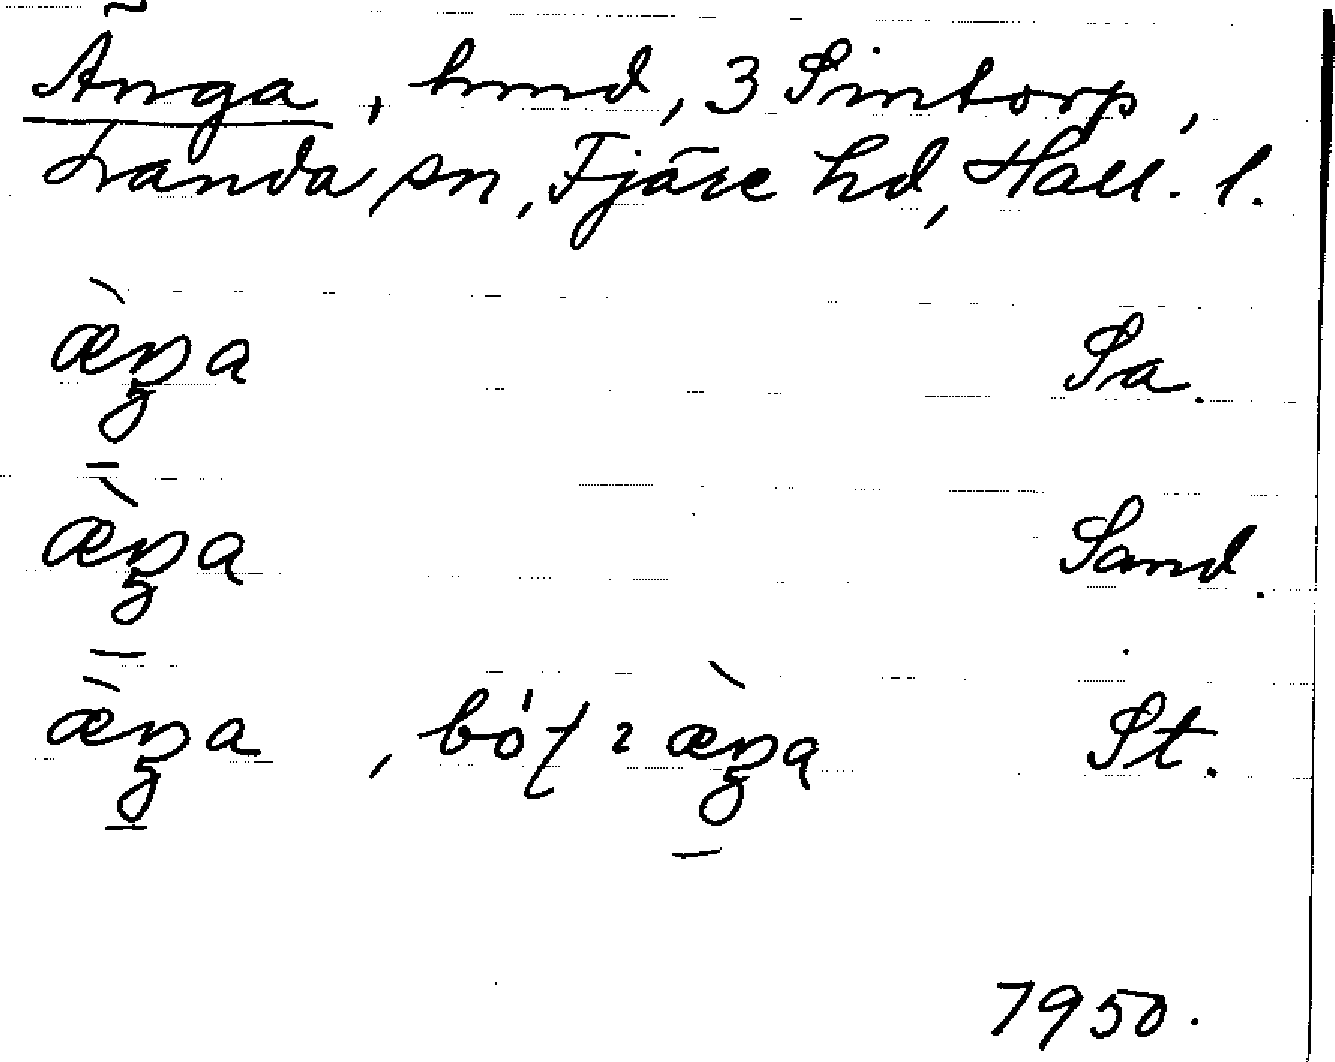 Änga, hmd, 3 Sintorp,
Landa sn, Fjäre hd, Hall. l.
æ̀ŋa Sa.
æ̀ŋa Sand.
æ̀ŋa, St.
7950.